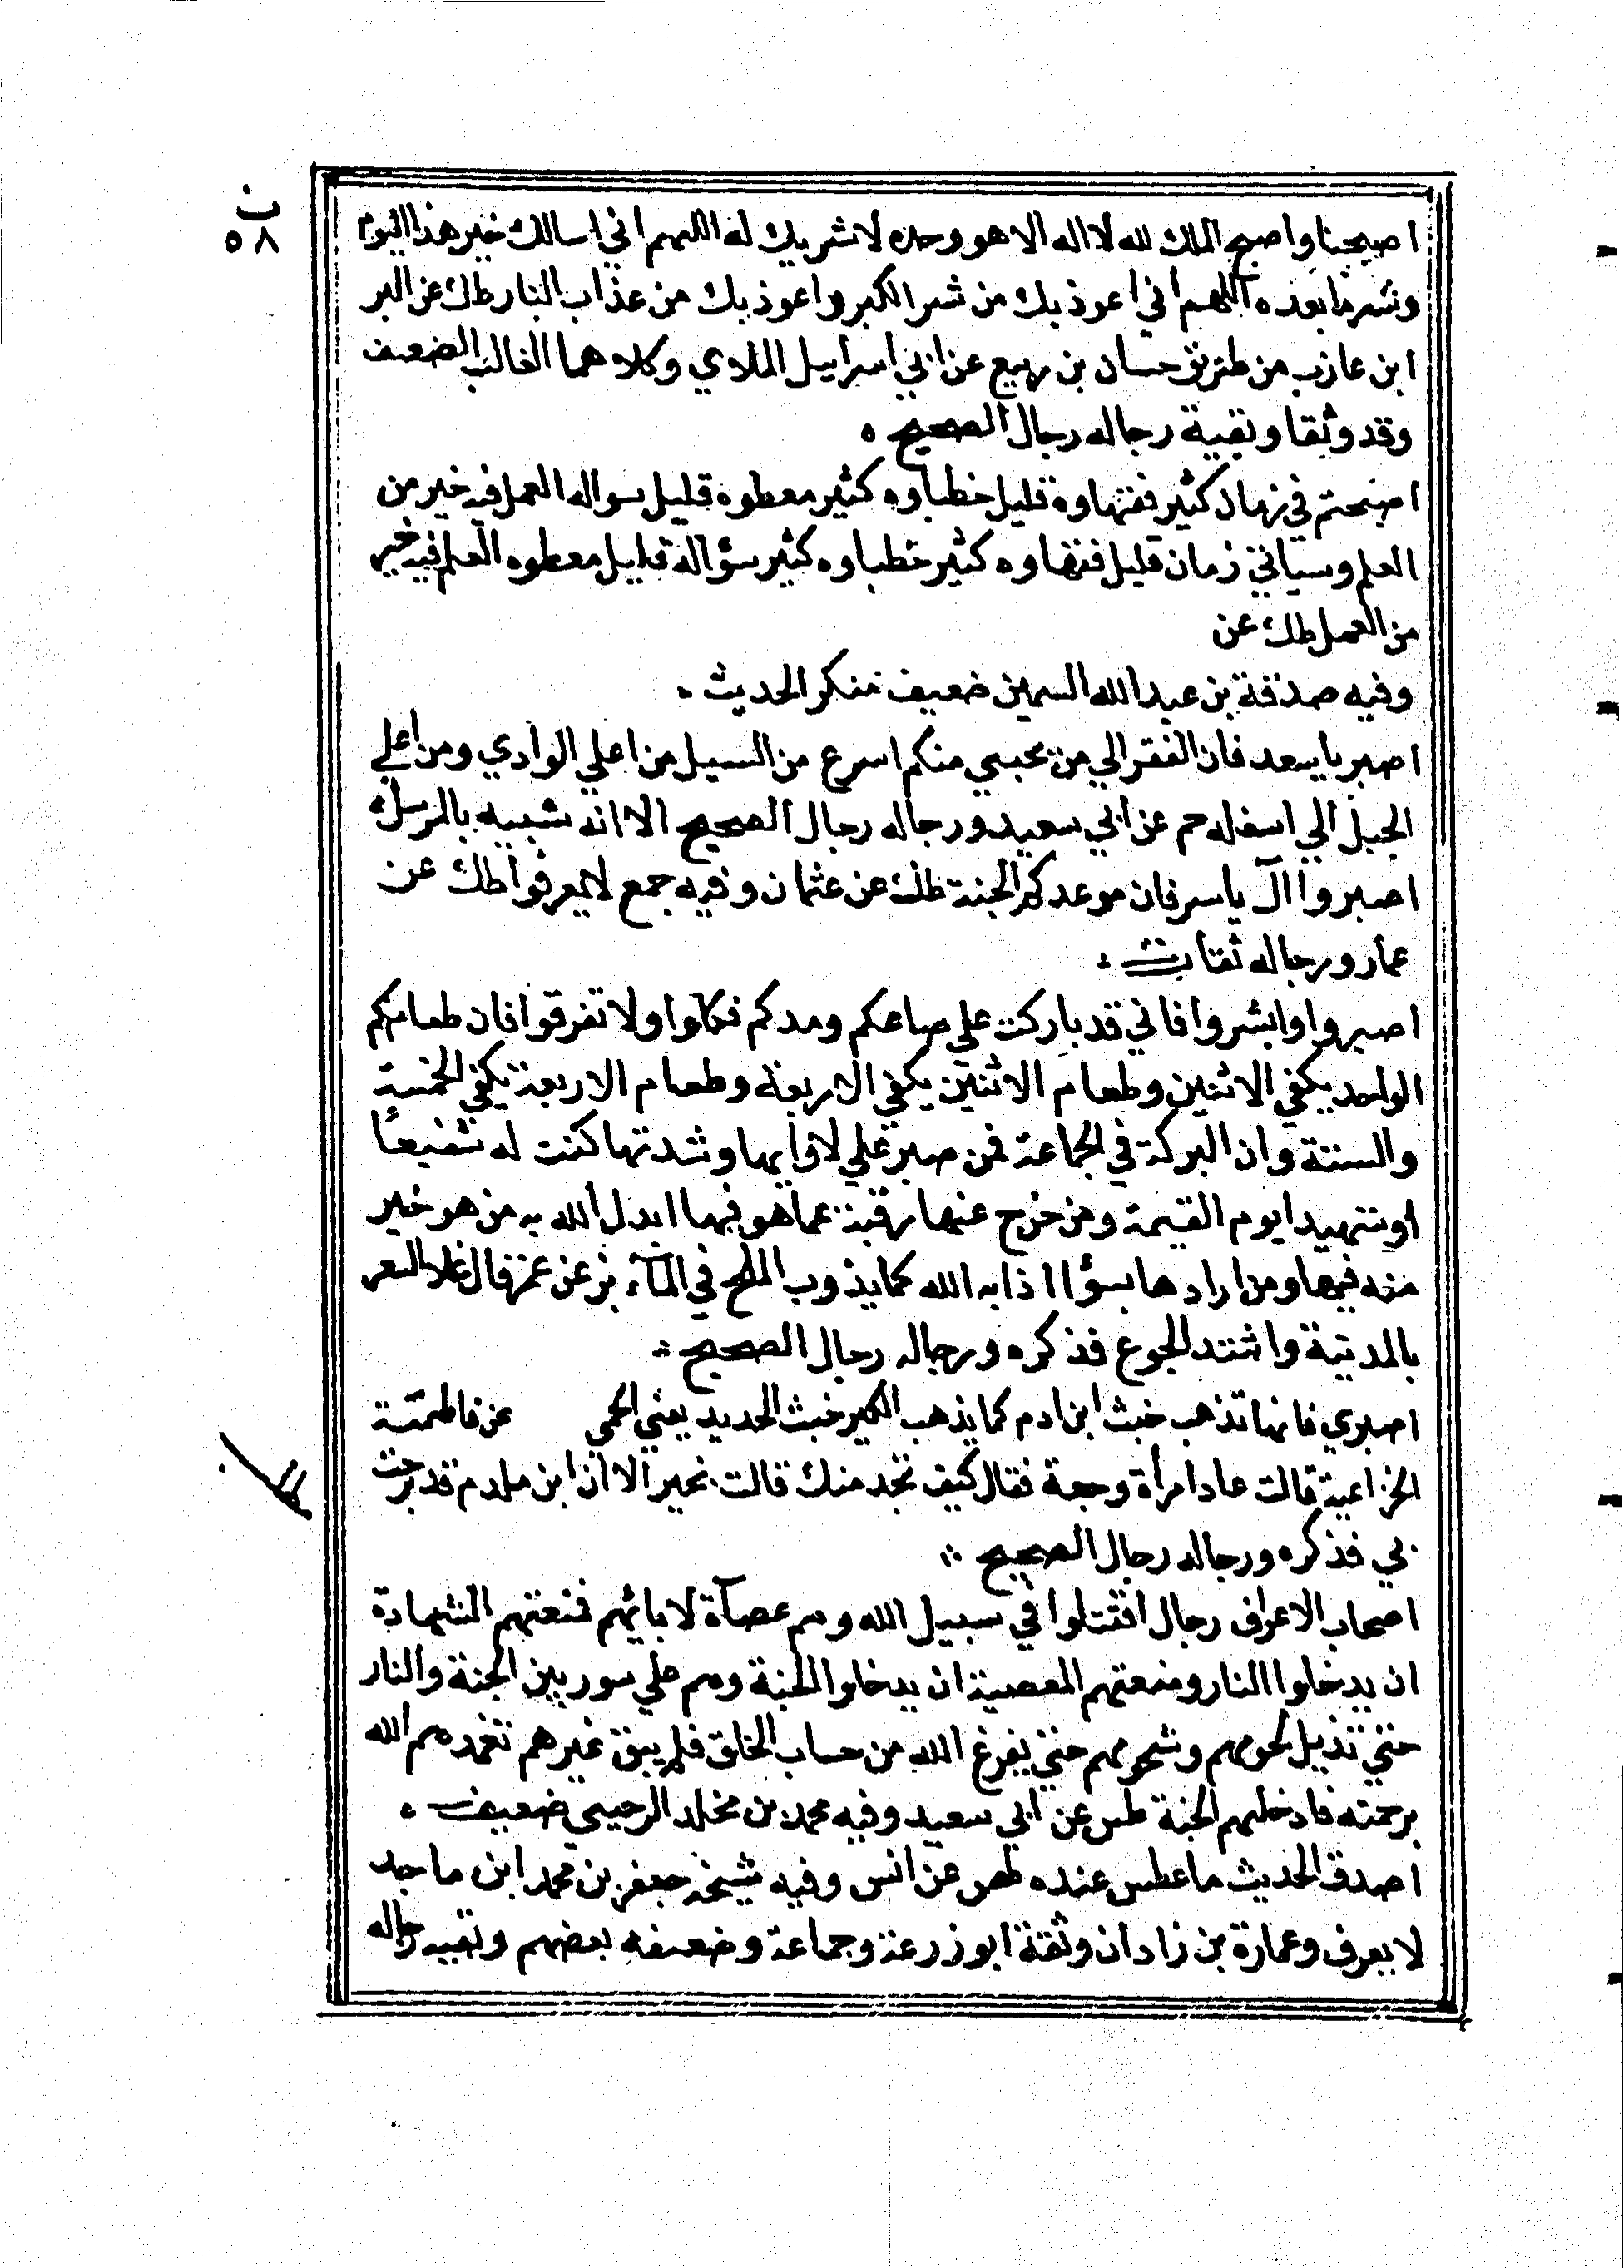 ب
٥٨
اصبحنا واصبح الملك لله لا اله الا هو وحده لا شريك له اللهم اني اسالك خير هذا اليوم
وشر ما بعده اللهم اني اعوذ بك من شر الكبر واعوذ بك من عذاب النار طك عن البر
ابن عازب من طريق حسان بن ربيع عن ابي اسراييل الملاي وكلاهما الغالب الضعف
وقد وثقا وبقية رجاله رجال الصحيح ه
اصبحتم في زمان كثير فقهاوه قليل خطباوه كثير معطوه قليل سواله العمل فيه خير من
العلم وسياتي زمان قليل فقهاوه كثير خطباوه كثير سؤاله قليل معطوه العلم فيه خير
من العمل طك عن
وفيه صدقة بن عبد الله السمين ضعيف منكر الحديث
اصبر يا سعد فان الفقر الي من يحبني منكم اسرع من السيل من اعلي الوادي ومن اعلي
الجبل الي اسفله حم عن ابي سعيد ورجاله رجال الصحيح الا انه شبيه بالمرسل
اصبروا آل ياسر فان موعدكم الجنة طك عن عثمان وفيه جمع لا يعرفوا طك عن
عمار ورجاله ثقات
اصبروا وابشروا فاني قد باركت علي صاعكم ومدكم فكلوا ولا تفرقوا فان طعامكم
الواحد يكفي الاثنين وطعام الاثنين يكفي الاربعة وطعام الاربعة يكفي الخمسة
والستة وان البركة في الجماعة فمن صبر علي لاوايها وشدتها كنت له شفيعًا
او شهيدا يوم القيمة ومن خرج عنها رغبة عما هو فيها ابدل الله به من هو خير
منه فيها ومن ارادها بسؤ اذابه الله كما يذوب الملح في المآء بز عن عمر قال غلا السعر
بالمدينة واشتد الجوع فذكره ورجاله رجال الصحيح
اصبري فانها تذهب خبث ابن ادم كما يذهب الكير خبث الحديد يعني الحمي عن فاطمة
الخزاعية قالت عاد امرأة وجعة فقال كيف تجدمنك قالت بخير الا ان ابن ملدم قد برحت
بي فذكره ورجاله رجال الصحيح
اصحاب الاعراف رجال اقتتلوا في سبيل الله وهم عصاة لابائهم فمنعتهم الشهادة
ان يدخلوا النار ومنعتهم المعصية ان يدخلوا الجنة وهم علي سور بين الجنة والنار
حتي تذبل لحومهم وشحومهم حتي يفرغ الله من حساب الخلق فلم يبق غيرهم تغمدهم الله
برحمته فادخلهم الجنة طس عن ابي سعيد وفيه محمد بن مخلد الرعيني ضعيف
اصدق الحديث ما عطس عنده طس عن انس وفيه شيخه جعفر بن محمد ابن ماجد
لا يعرف وعمارة بن زادان وثقة ابو زرعة وجماعة وضعفه بعضهم وبقية رجاله